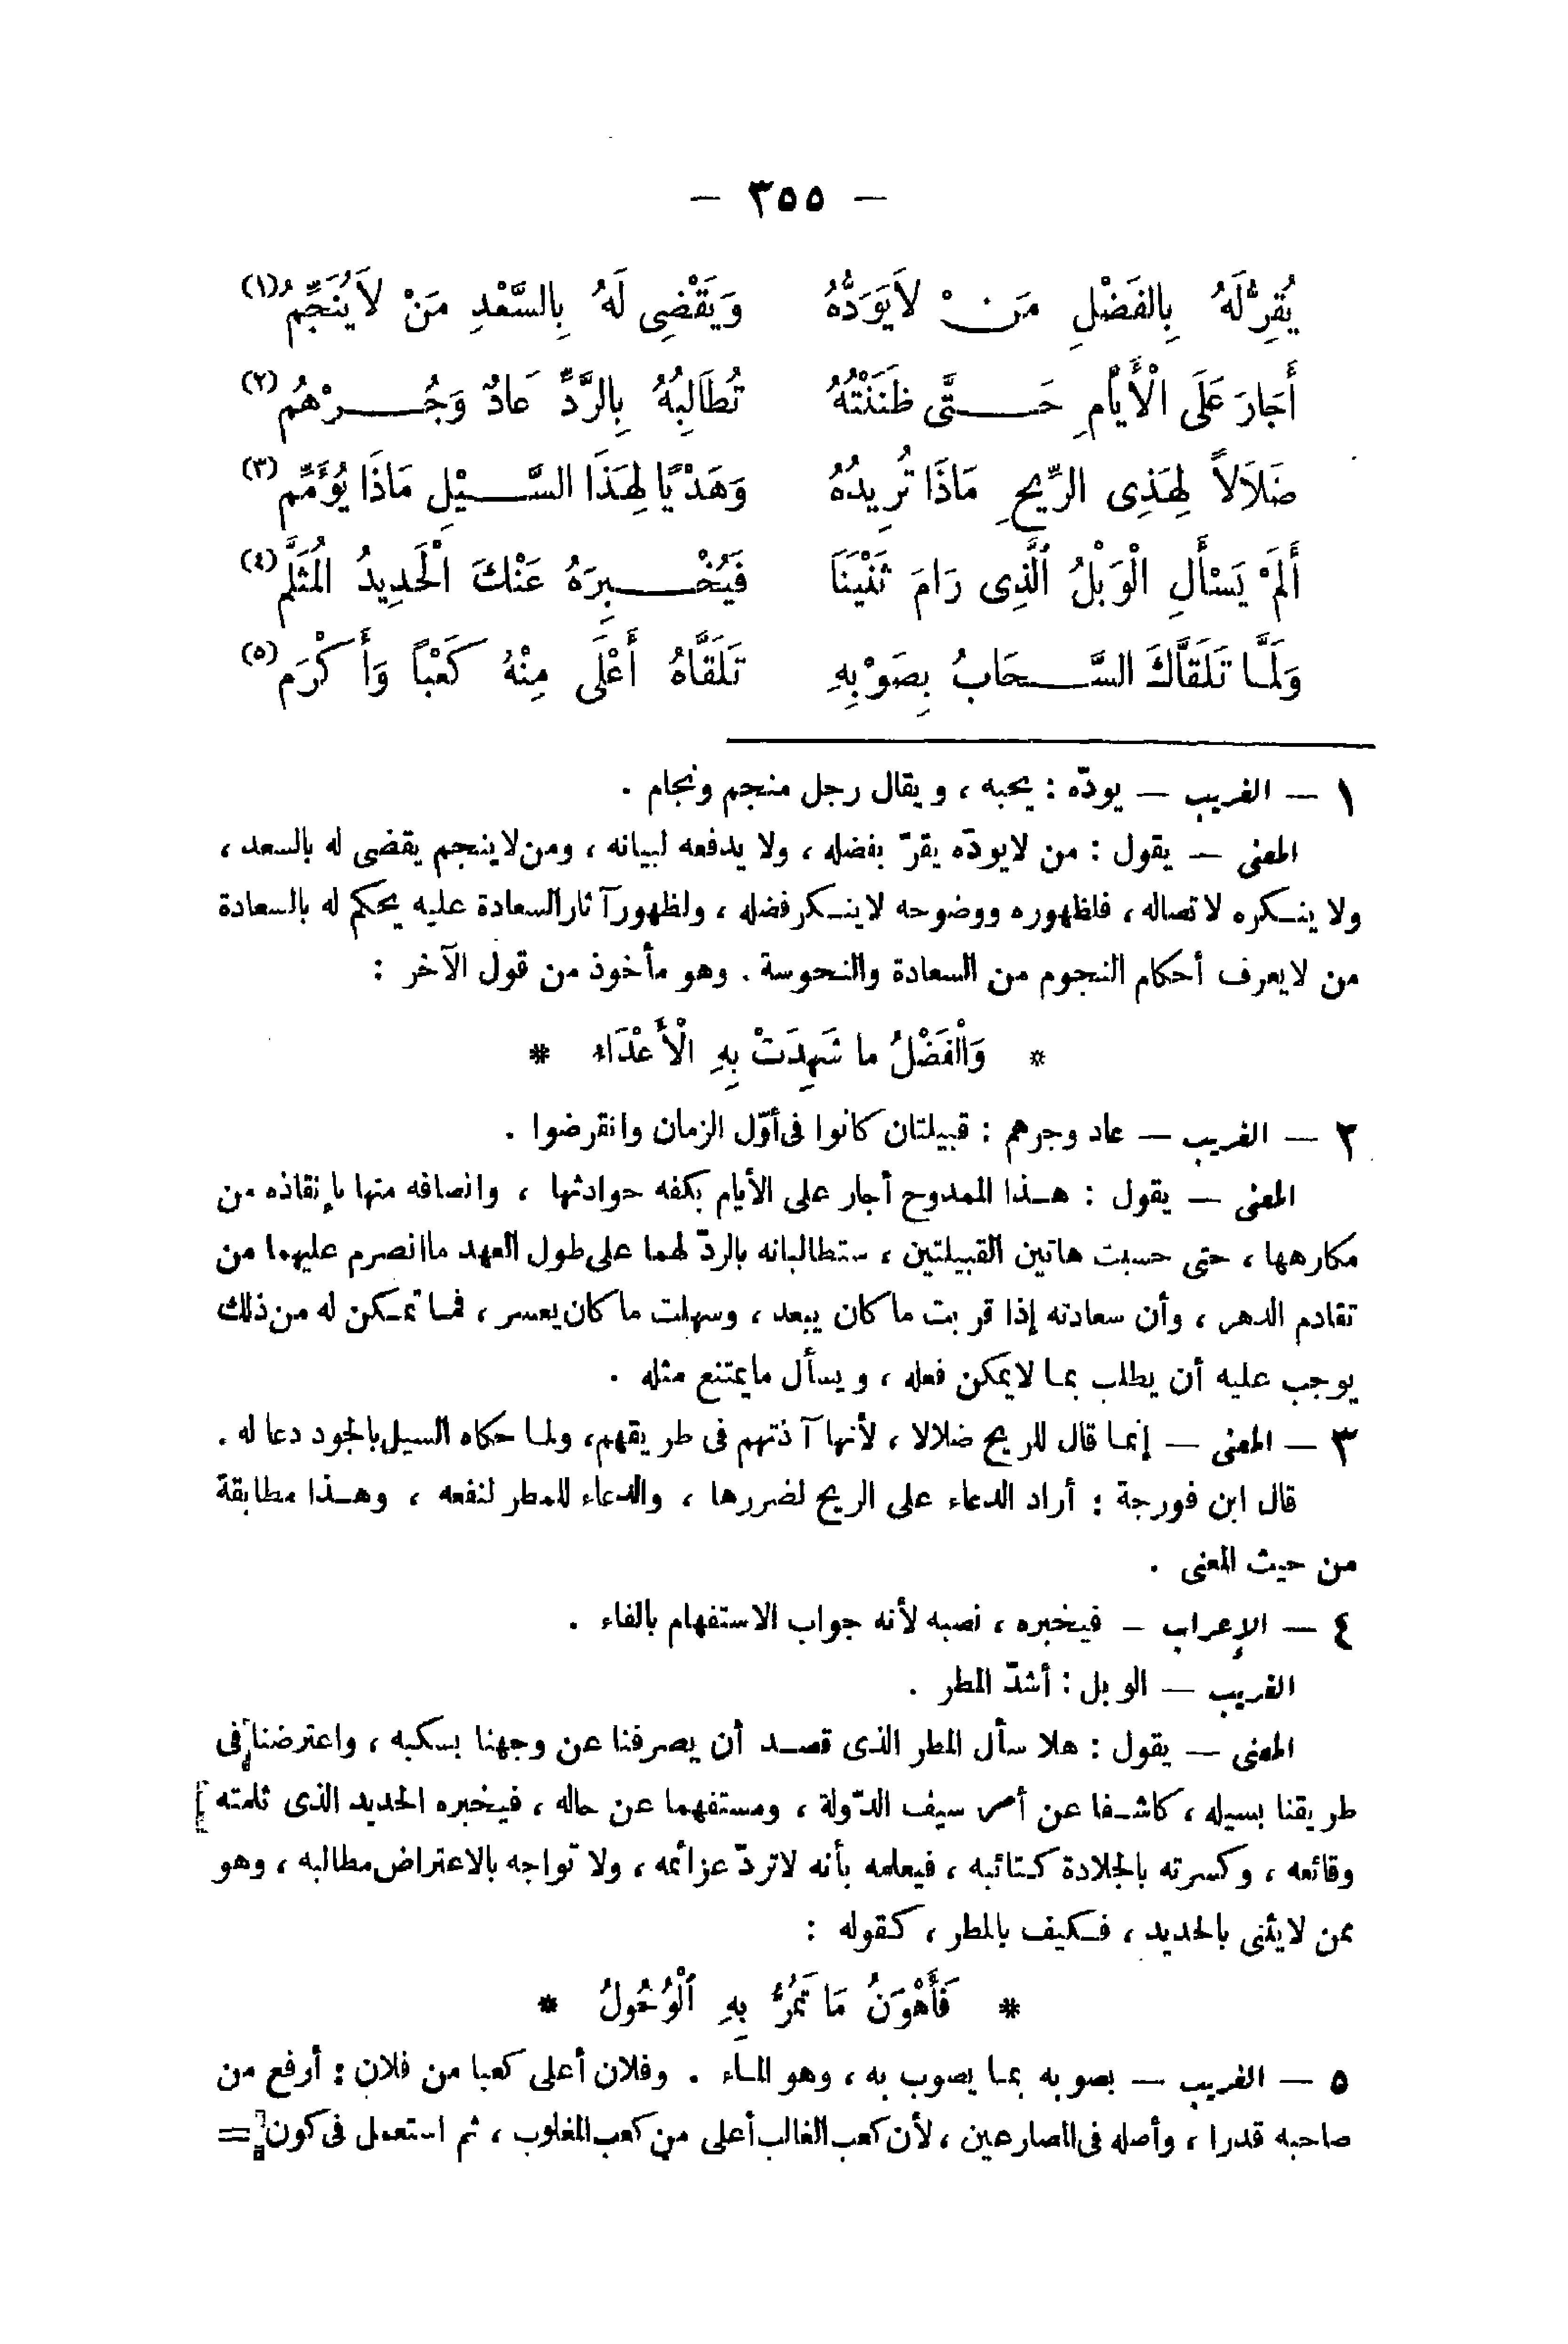 — ٣٥٥ —
يُقِرُّ لَهُ بِالفَضْلِ مَنْ لاَيَوَدُّهُ وَيَقْضِى لَهُ بِالسَّعْدِ مَنْ لاَيُنَجِّمُ (١)
أَجَارَ عَلَى الْأَيَّامِ حَتَّى ظَنَنْتُهُ تُطَالِبُهُ بِالرَّدِّ عَادٌ وَجُرْهُمُ (٢)
ضَلاَلاً لِهَذِى الرِّيحِ مَاذَا تُرِيدُهُ وَهَدْيًا لِهَذَا السَّيْلِ مَاذَا يُؤَمِّم (٣)
أَلَمْ يَسْأَلِ الْوَبْلُ الَّذِى رَامَ ثَنْيَنَا فَيُخْبِرَهُ عَنْكَ الْحَدِيدُ الْمُثَلَّم (٤)
وَلَمَّا تَلَقَّاكَ السَّحَابُ بِصَوْبِهِ تَلَقَّاهُ أَعْلَى مِنْهُ كَعْبًا وَأَكْرَم (٥)
١ — الغريب — يودّه : يحبه ، ويقال رجل منجم ونجام .
المعنى — يقول : من لايودّه يقرّ بفضله ، ولا يدفعه لبيانه ، ومن لاينجم يقضى له بالسعد ،
ولا ينكره لاتصاله ، فلظهوره ووضوحه لاينكر فضله ، ولظهور آثار السعادة عليه يحكم له بالسعادة
من لايعرف أحكام النجوم من السعادة والنحوسة . وهو مأخوذ من قول الآخر :
* وَالْفَضْلُ ما شَهِدَتْ بِهِ الْأَعْدَاء *
٢ — الغريب — عاد وجرهم : قبيلتان كانوا فى أوّل الزمان وانقرضوا .
المعنى — يقول : هذا الممدوح أجار على الأيام بكفه حوادثها ، وانصافه منها بإنقاذه من
مكارهها ، حتى حسبت هاتين القبيلتين ، ستطالبانه بالردّ لهما على طول العهد ماانصرم عليهما من
تقادم الدهر ، وأن سعادته إذا قربت ما كان يبعد ، وسهلت ما كان يعسر ، فما تمكن له من ذلك
يوجب عليه أن يطلب بما لايمكن فعله ، ويسأل مايمتنع مثله .
٣ — المعنى — إنما قال للريح ضلالا ، لأنها آذتهم فى طريقهم، ولما حكاه السيل بالجود دعا له .
قال ابن فورجة : أراد الدعاء على الريح لضررها ، والدعاء للمطر لنفعه ، وهذا مطابقة
من حيث المعنى .
٤ — الإعراب — فيخبره ، نصبه لأنه جواب الاستفهام بالفاء .
الغريب — الوبل : أشدّ المطر .
المعنى — يقول : هلا سأل المطر الذى قصد أن يصرفنا عن وجهنا بسكبه ، واعترضنا فى
طريقنا بسيله ، كاشفا عن أمر سيف الدّولة ، ومستفهما عن حاله ، فيخبره الحديد الذى ثلمته
وقائعه ، وكسرته بالجلادة كتائبه ، فيعلمه بأنه لاتردّ عزائمه ، ولا تواجه بالاعتراض مطالبه ، وهو
ممن لايثنى بالحديد ، فكيف بالمطر ، كقوله :
* فَأَهْوَنُ مَا تَمُرُّ بِهِ الْوُحُولُ *
٥ — الغريب — بصوبه بما يصوب به ، وهو الماء . وفلان أعلى كعبا من فلان : أرفع من
صاحبه قدرا ، وأصله فى المصارعين ، لأن كعب الغالب أعلى من كعب المغلوب ، ثم استعمل فى كون =